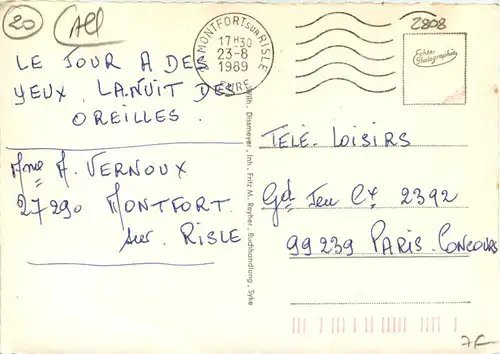 20
All
LE JOUR A DES
YEUX, LA NUIT DES
OREILLES.
Mme A. VERNOUX
27290 MONTFORT
sur RISLE
MONTFORT SUR RISLE
17H30
23-8
1989
EURE
2808
Echte Photographie
Wilh. Dissmeyer, Inh. Fritz M. Reyher, Buchhandlung, Syke
TELE-LOISIRS
Gd Jeu Ct 2392
99239 PARIS-CONCOURS
7F